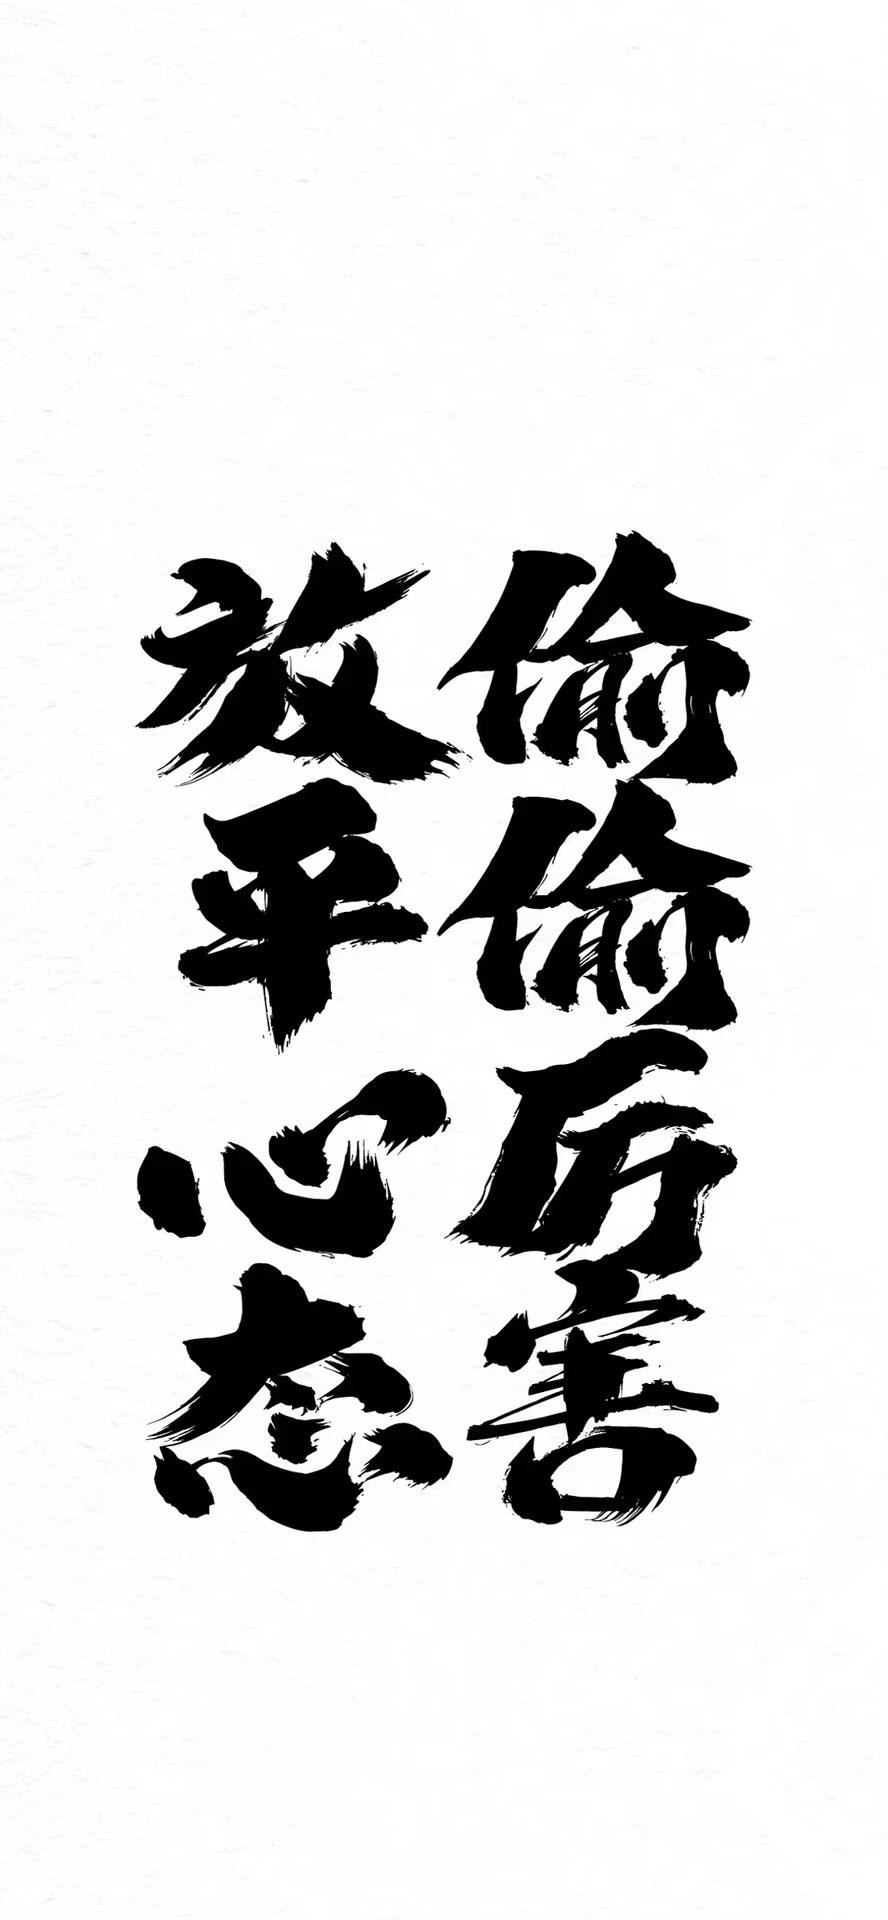 偷偷厉害
放平心态